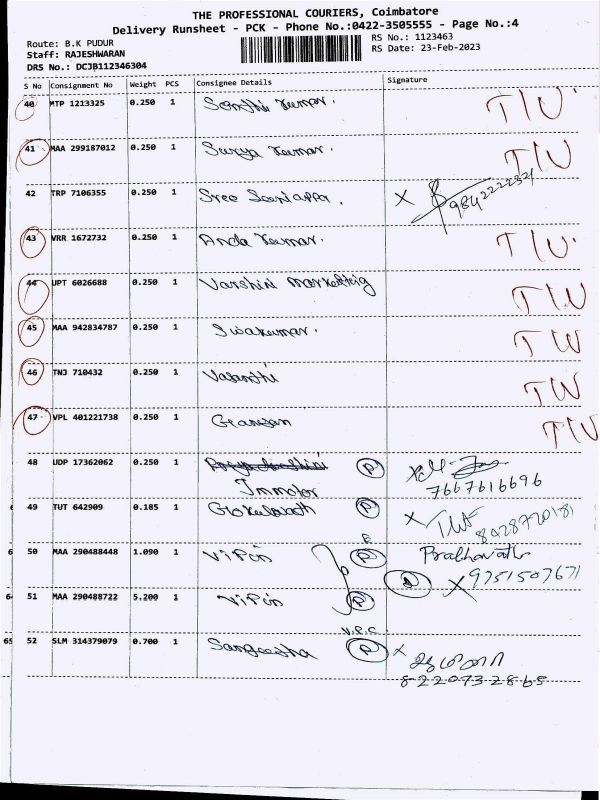 THE PROFESSIONAL COURIERS, Coimbatore
Delivery Runsheet - PCK - Phone No.:0422-3505555 - Page No.:4
Route: B.K PUDUR
RS No.: 1123463
Staff: RAJESHWARAN
RS Date: 23-Feb-2023
DRS No.: DCJB112346304
S No Consignment No Weight PCS Consignee Details Signature
40 MTP 1213325 0.250 1 Santhi Kumar. T/U
41 MAA 299187012 0.250 1 Surya Kumar. T/U
42 TRP 7106355 0.250 1 Sree X 9842222321
43 VRR 1672732 0.250 1 Anda Kumar. T/U
44 UPT 6026688 0.250 1 Varshini Marketing T/U
45 MAA 942834787 0.250 1 Sivakumar. T/U
46 TNJ 710432 0.250 1 Vasanthi T/U
47 VPL 401221738 0.250 1 Ganesan T/U
48 UDP 17362062 0.250 1 P
Immotor 7667616696
49 TUT 642909 0.185 1 P X 8428720181
50 MAA 290488448 1.090 1 Vipin P
X 9751507671
51 MAA 290488722 5.200 1 Vipin P
65 52 SLM 314379079 0.700 1 Sangeetha P X
8220732865